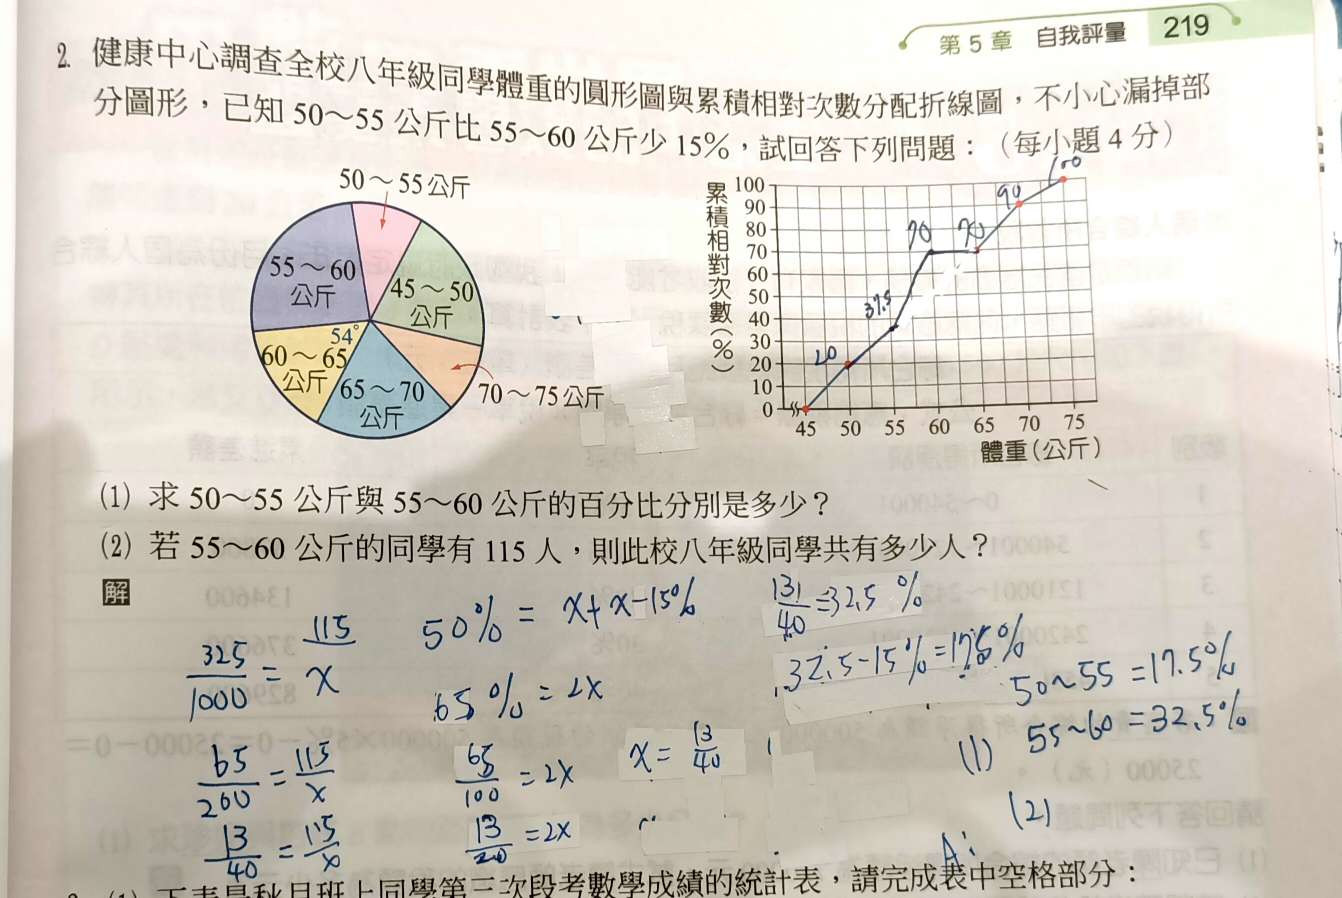 第 5 章 自我評量 219
2. 健康中心調查全校八年級同學體重的圓形圖與累積相對次數分配折線圖，不小心漏掉部
分圖形，已知 50～55 公斤比 55～60 公斤少 15％，試回答下列問題：（每小題 4 分）
50～55 公斤
55～60
公斤
45～50
公斤
54°
60～65
公斤
65～70
公斤
70～75 公斤
累積相對次數(％)
100
90
80
70
60
50
40
30
20
10
0
45 50 55 60 65 70 75
體重(公斤)
20
37.5
70
70
90
100
(1) 求 50～55 公斤與 55～60 公斤的百分比分別是多少？
(2) 若 55～60 公斤的同學有 115 人，則此校八年級同學共有多少人？
解
325/1000 = 115/x
65/200 = 115/x
13/40 = 115/x
50% = x+x-15%
65% = 2x
65/100 = 2x
13/20 = 2x
x = 13/40
131/40 = 32.5 %
32.5-15% = 17.5%
50~55 = 17.5%
(1) 55~60 = 32.5%
(2)
A:
(1) 下表是秋月班上同學第二次段考數學成績的統計表，請完成表中空格部分：